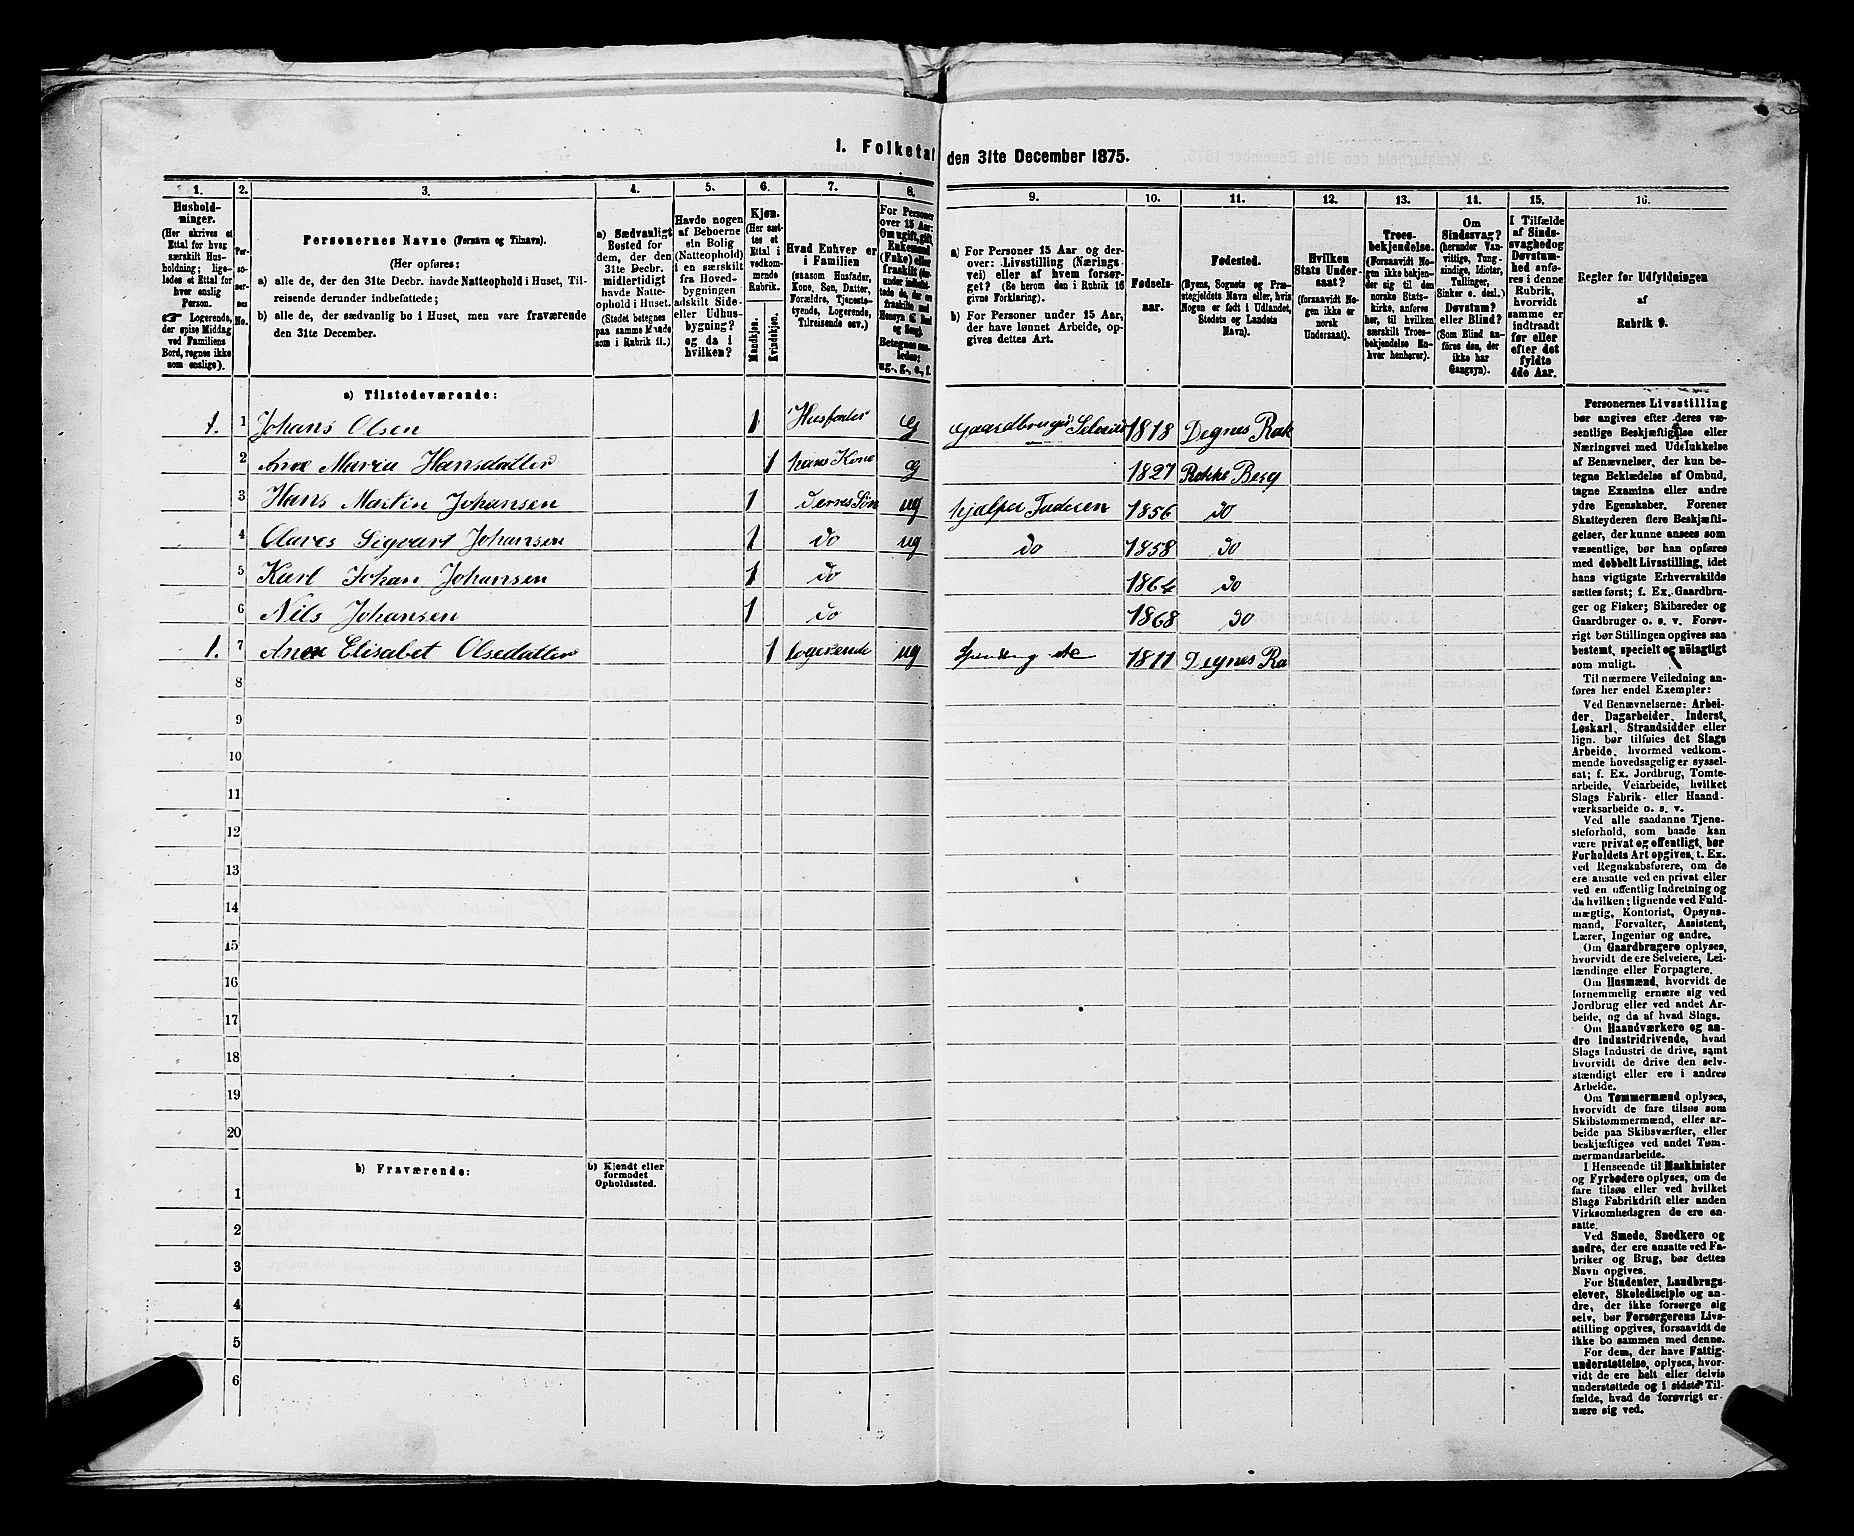 1. Folketal
den 31te December 1875.
1.
2.
3.
4.
5.
6.
7.
8.
9.
10.
11.
12.
13.
14.
15.
16.
Hushold-
ninger.
(Her skrives et
Ettal for hver
særskilt Hus-
holdning; lige-
ledes et Ettal
for hver enslig
Person.
☛ Logerende,
der spise Middag
ved Familiens
Bord, regnes ikke
som enslige).
Per-
so-
ner-
nes
No.
Personernes Navne (Fornavn og Tilnavn).
(Her opføres:
a) alle de, der den 31te Decbr. havde Natteophold i Huset, Til-
reisende derunder indbefattede;
b) alle de, der sædvanlig bo i Huset, men vare fraværende
den 31te December.
a) Sædvanligt
Bosted for
dem, der den
31te Decbr.
midlertidigt
havde Natte-
ophold i Huset.
(Stedet betegnes
paa samme Maade
som i Rubrik 11.)
Havde nogen
af Beboerne
sin Bolig
(Natteophold)
i en særskilt
fra Hoved-
bygningen
adskilt Side-
eller Udhus-
bygning?
og da i
hvilken?
Kjøn.
(Her sæt-
tes et
Ettal i
vedkom-
mende
Rubrik.
Mandkjøn.
Kvindekjøn.
Hvad Enhver er
i Familien
(saasom Husfader,
Kone, Søn, Datter,
Forældre, Tjeneste-
tyende, Logerende,
Tilreisende osv.)
For Personer
over 15 Aar:
Om ugift, gift,
Enkemand
(Enke) eller
fraskilt
Betegnes saa-
ledes:
ug., g., e., f.
a) For Personer 15 Aar og der-
over: Livsstilling (Nærings-
vei) eller af hvem forsør-
get? (Se herom den i Rubrik 16
givne Forklaring).
b) For Personer under 15 Aar,
der have lønnet Arbeide, op-
gives dettes Art.
Fødsels-
aar.
Fødested.
(Byens, Sognets og Præ-
stegjeldets Navn eller, hvis
Nogen er født i Udlandet,
Stedets og Landets
Navn).
Hvilken
Stats Under-
saat?
(forsaavidt No-
gen ikke er
norsk
Undersaat).
Troes-
bekjendelse.
(Forsaavidt No-
gen ikke bekjen-
der sig til den
norske Stats-
kirke, anføres
her, til hvilken
særskilt Troes-
bekjendelse En-
hver henhører).
Om
Sindssvag?
(herunder Van-
vittige, Tung-
sindige, Idioter,
Tullinger,
Sinker o. desl.)
Døvstum?
eller Blind?
(Som Blind an-
føres den, der
ikke har
Gangsyn).
I Tilfælde
af Sinds-
svaghed og
Døvstum-
hed anfø-
res i denne
Rubrik,
hvorvidt
samme er
indtraadt
før eller
efter det
fyldte
4de Aar.
Regler for Udfyldningen
af
Rubrik 9.
a) Tilstedeværende:
1. 1 Johans Olsen 1 Husfader g Gaardbruger Selveier 1818 Degnes Rak
2 Ane Maria Hansdatter 1 hans Kone g 1827 Rokke Berg
3 Hans Martin Johansen 1 deres Søn ug hjælper Faderen 1856 do
4 Olaves Sigvart Johansen 1 do ug do 1858 do
5 Karl Johan Johansen 1 do 1864 do
6 Nils Johansen 1 do 1868 do
1. 7 Ane Elisabet Olsdatter 1 Logerende ug 1811 Degnes Ra
8
9
10
11
12
13
14
15
16
17
18
19
20
b) Fraværende:
b) Kjendt eller
formodet
Opholdssted.
1
2
3
4
5
6
Personernes Livsstilling
bør angives efter deres væ-
sentlige Beskjæftigelse eller
Næringsvei med Udelukkelse
af Benævnelser, der kun be-
tegne Beklædelse af Ombud,
tagne Examina eller andre
ydre Egenskaber. Forener
Skatteyderen flere Beskjæfti-
gelser, der kunne ansees som
væsentlige, bør han opføres
med dobbelt Livsstilling, idet
hans vigtigste Erhvervskilde
sættes først; f. Ex. Gaardbru-
ger og Fisker; Skibsreder og
Gaardbruger o. s. v. Forøv-
rigt bør Stillingen opgives saa
bestemt, specielt og nøiagtigt
som muligt.
Til nærmere Veiledning an-
føres her endel Exempler:
Ved Benævnelserne: Arbei-
der, Dagarbeider, Inderst,
Løskarl, Strandsidder eller
lign. bør tilføies det Slags
Arbeide, hvormed vedkom-
mende hovedsagelig er syssel-
sat; f. Ex. Jordbrug, Tomte-
arbeide, Veiarbeide, hvilket
Slags Fabrik- eller Haand-
værksarbeide o. s. v.
Ved alle saadanne Tjene-
steforhold, som baade kan
være privat og offentligt, bør
Forholdets Art opgives, t. Ex.
ved Regnskabsførere, om de
ere ansatte ved en privat eller
ved en offentlig Indretning og
da hvilken; lignende ved Fuld-
mægtig, Kontorist, Opsyns-
mand, Forvalter, Assistent,
Lærer, Ingeniør og andre.
Om Gaardbrugere oplyses,
hvorvidt de ere Selveiere, Lei-
lændinge eller Forpagtere.
Om Husmænd, hvorvidt de
fornemmelig ernære sig ved
Jordbrug eller ved andet Ar-
beide, og da af hvad Slags.
Om Haandværkere og an-
dre Industridrivende, hvad
Slags Industri de drive, samt
hvorvidt de drive den selv-
stændigt eller ere i andres
Arbeide.
Om Tømmermænd oplyses,
hvorvidt de fare tilsøs som
Skibstømmermænd, eller ar-
beide paa Skibsværfter, eller
beskjæftiges ved andet Tøm-
mermandsarbeide.
I Henseende til Maskinister
og Fyrbødere oplyses, om de
fare tilsøs eller ved hvilket
Slags Fabrikdrift eller anden
Virksomhedsgren de ere an-
satte.
Ved Smede, Snedkere og
andre, der ere ansatte ved Fa-
briker og Brug, bør dettes
Navn opgives.
For Studenter, Landbrugs-
elever, Skoledisciple og an-
dre, der ikke forsørge sig
selv, bør Forsørgerens Livs-
stilling opgives, forsaavidt de
ikke bo sammen med denne.
For dem, der have Fattig-
understøttelse, oplyses, hvor-
vidt de ere helt eller delvis
understøttede og i sidste Til-
fælde, hvad de forøvrigt er-
nære sig ved.